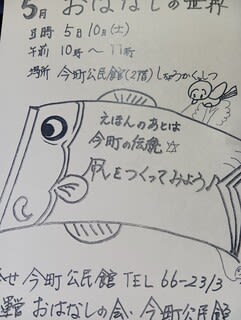 5月 おはなしの世界
日時 5日10日(土)
午前 10時〜11時
場所 今町公民館(2階)しゅうかいしつ
えほんのあとは
今町の伝統☆
凧をつくってみよう♪
せ 今町公民館 TEL 66-23/3
おはなしの会・今町公民館